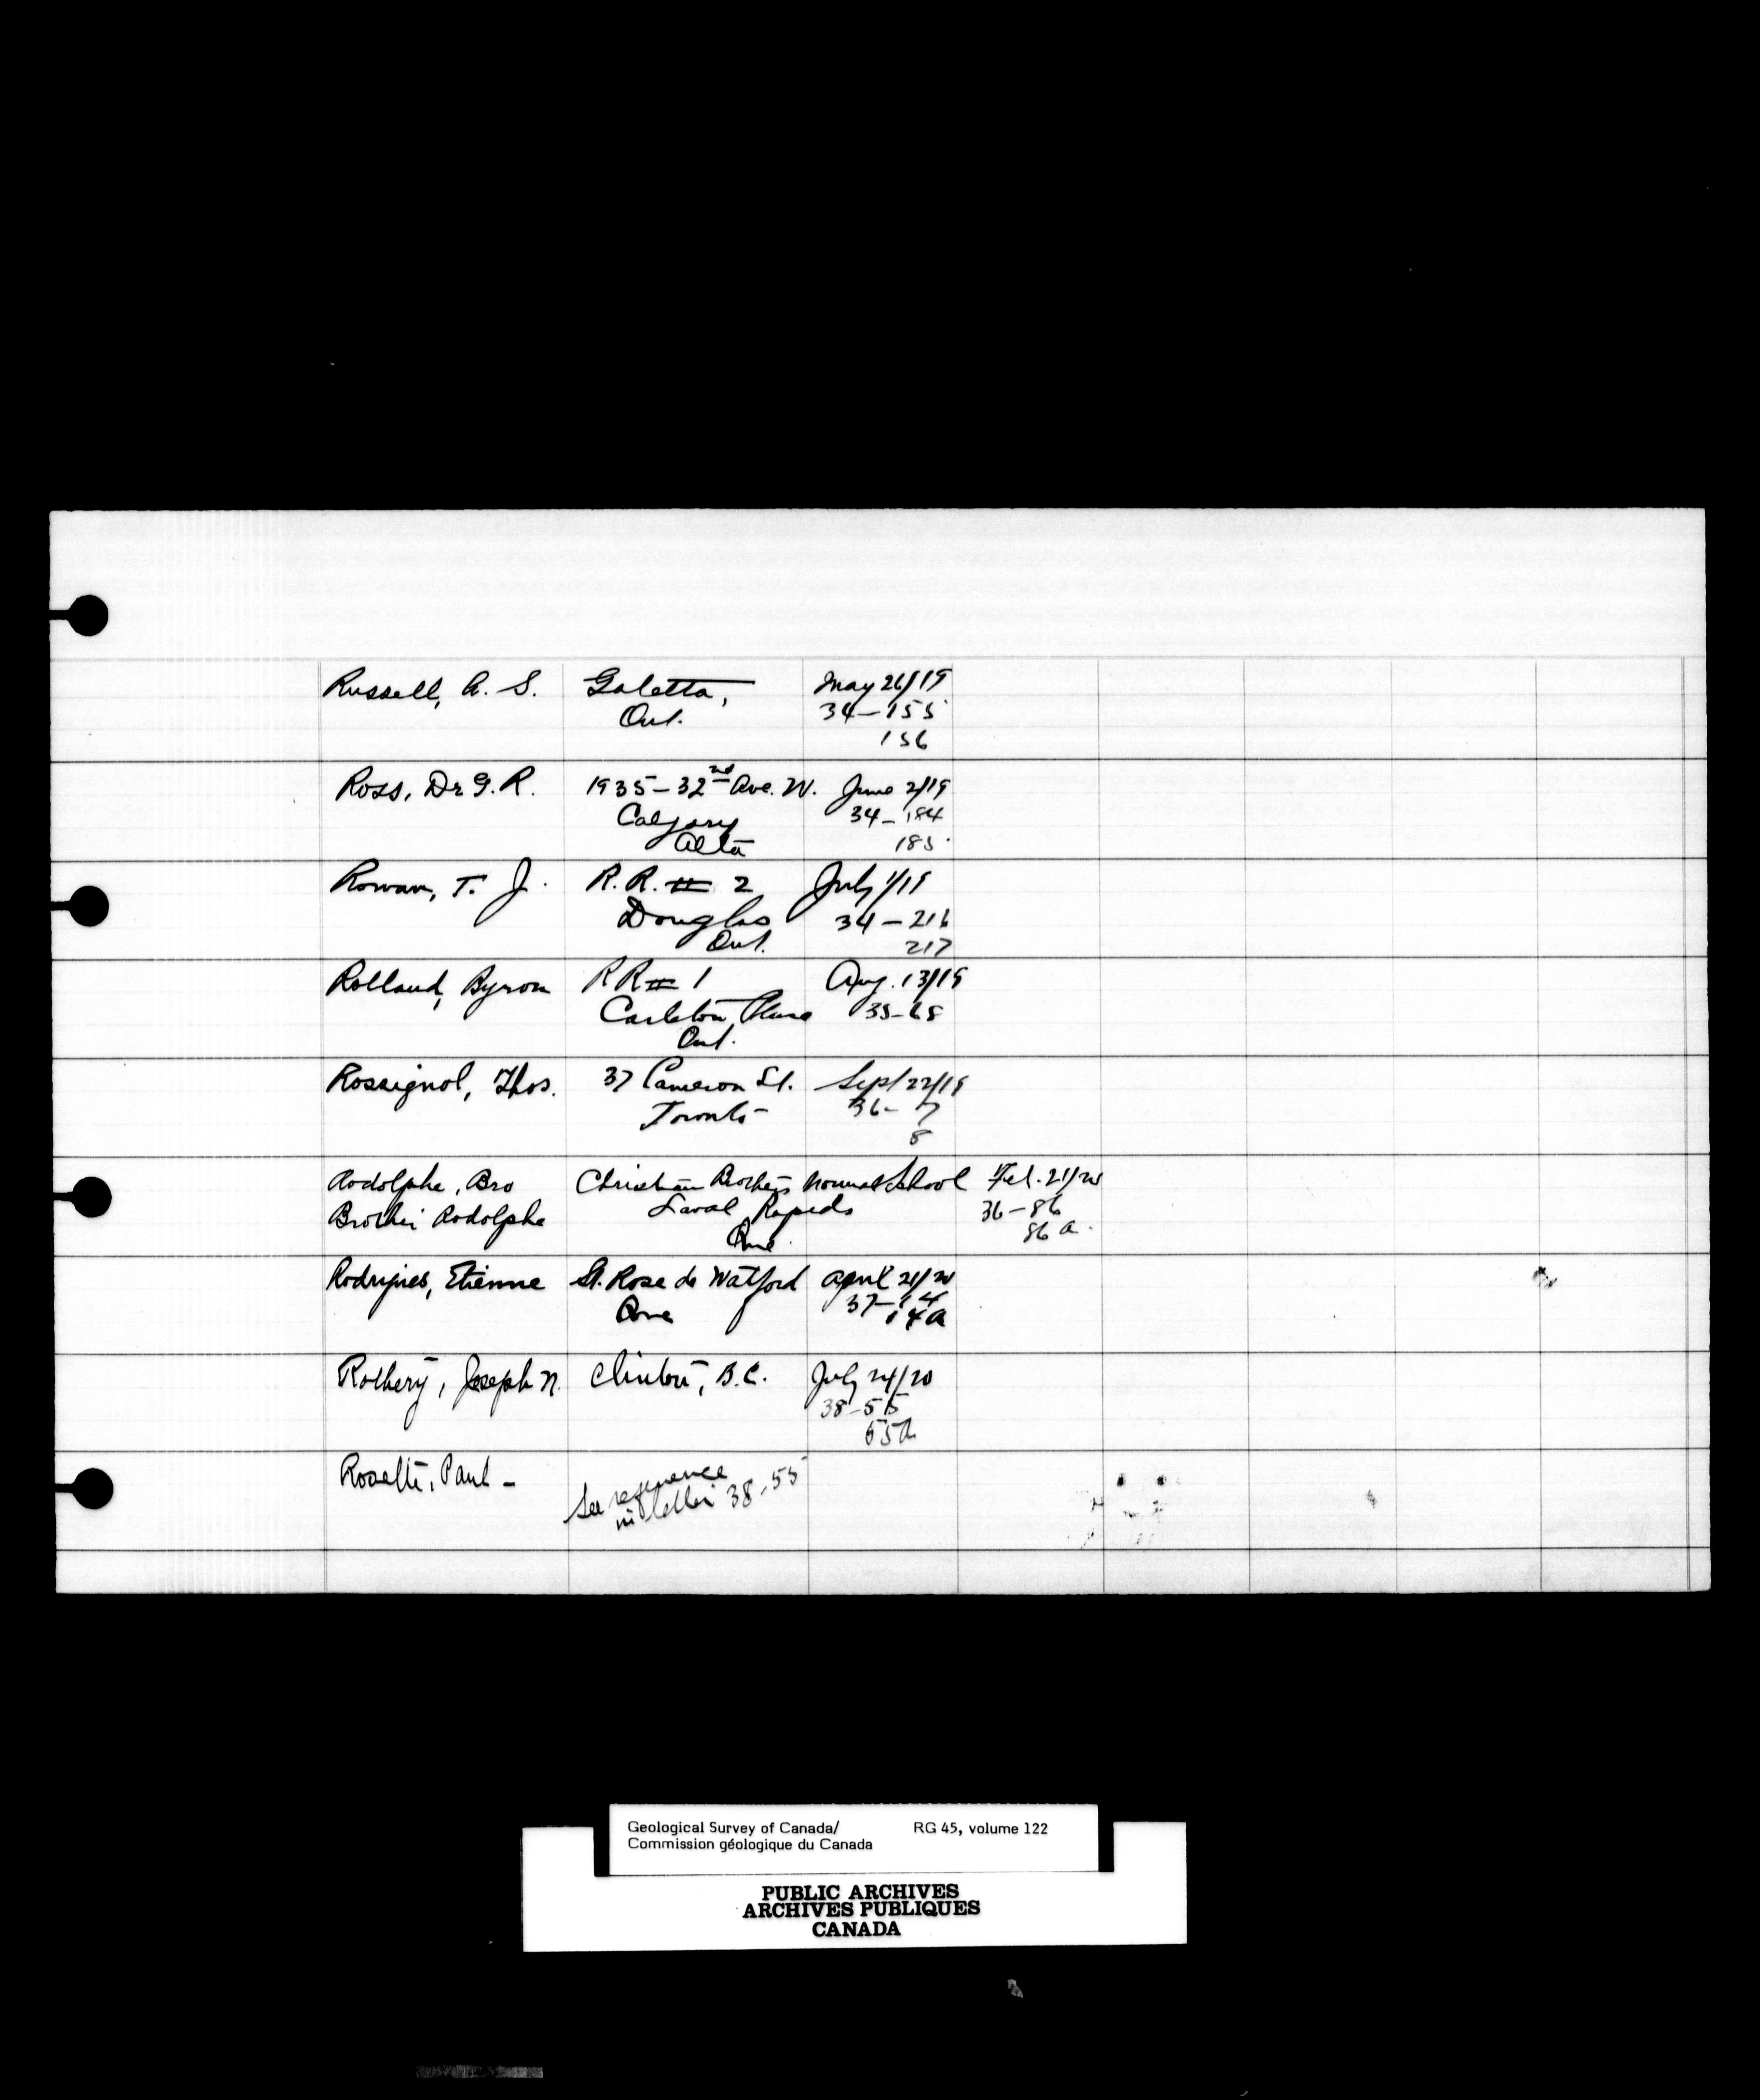 Russell, A. S. Galetta, May 26/19
Ont. 34-155
156
Ross, Dr G. R. 1935-32nd Ave. W. June 2/19
Calgary 34-184
Alta 185
Rowan, T. J. R. R. # 2 July 1/19
Douglas 34-216
Ont. 217
Rolland, Byron R R # 1 Aug. 13/19
Carleton Place 35-68
Ont.
Rossignol, Thos. 37 Cameron St. Sept 22/19
Toronto 36-7
8
Rodolphe, Bro Christian Brothers Normal School Feb. 21/20
Brother Rodolphe Laval Rapids 36-86
Que. 86 a
Rodrigues, Etienne St. Rose de Watford April 21/20
Que 37-14
14a
Rothery, Joseph N. Clinton, B.C. July 24/20
38-55
55a
Rosette, Paul - See reference
in letter 38-55
Geological Survey of Canada/ RG 45, volume 122
Commission géologique du Canada
PUBLIC ARCHIVES
ARCHIVES PUBLIQUES
CANADA